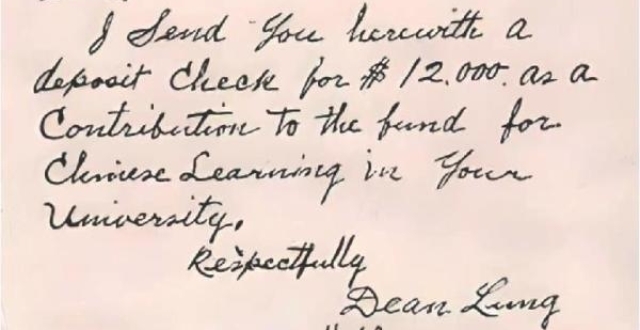 I Send You herewith a
deposit Check for $12.000. as a
Contribution to the fund for
Chinese Learning in Your
University.
Respectfully
Dean Lung